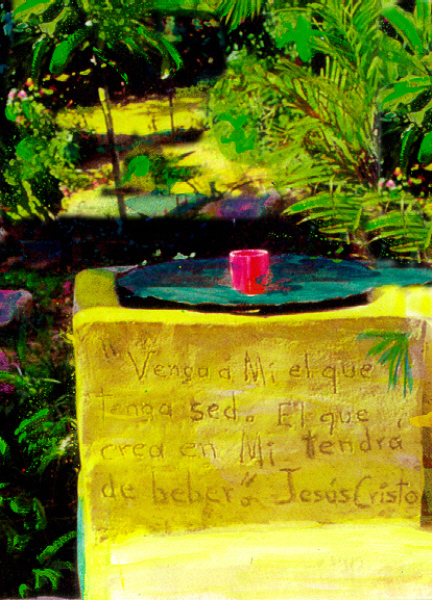 "Venga a Mi el que
tenga sed. El que
crea en Mi tendrá
de beber". Jesús Cristo